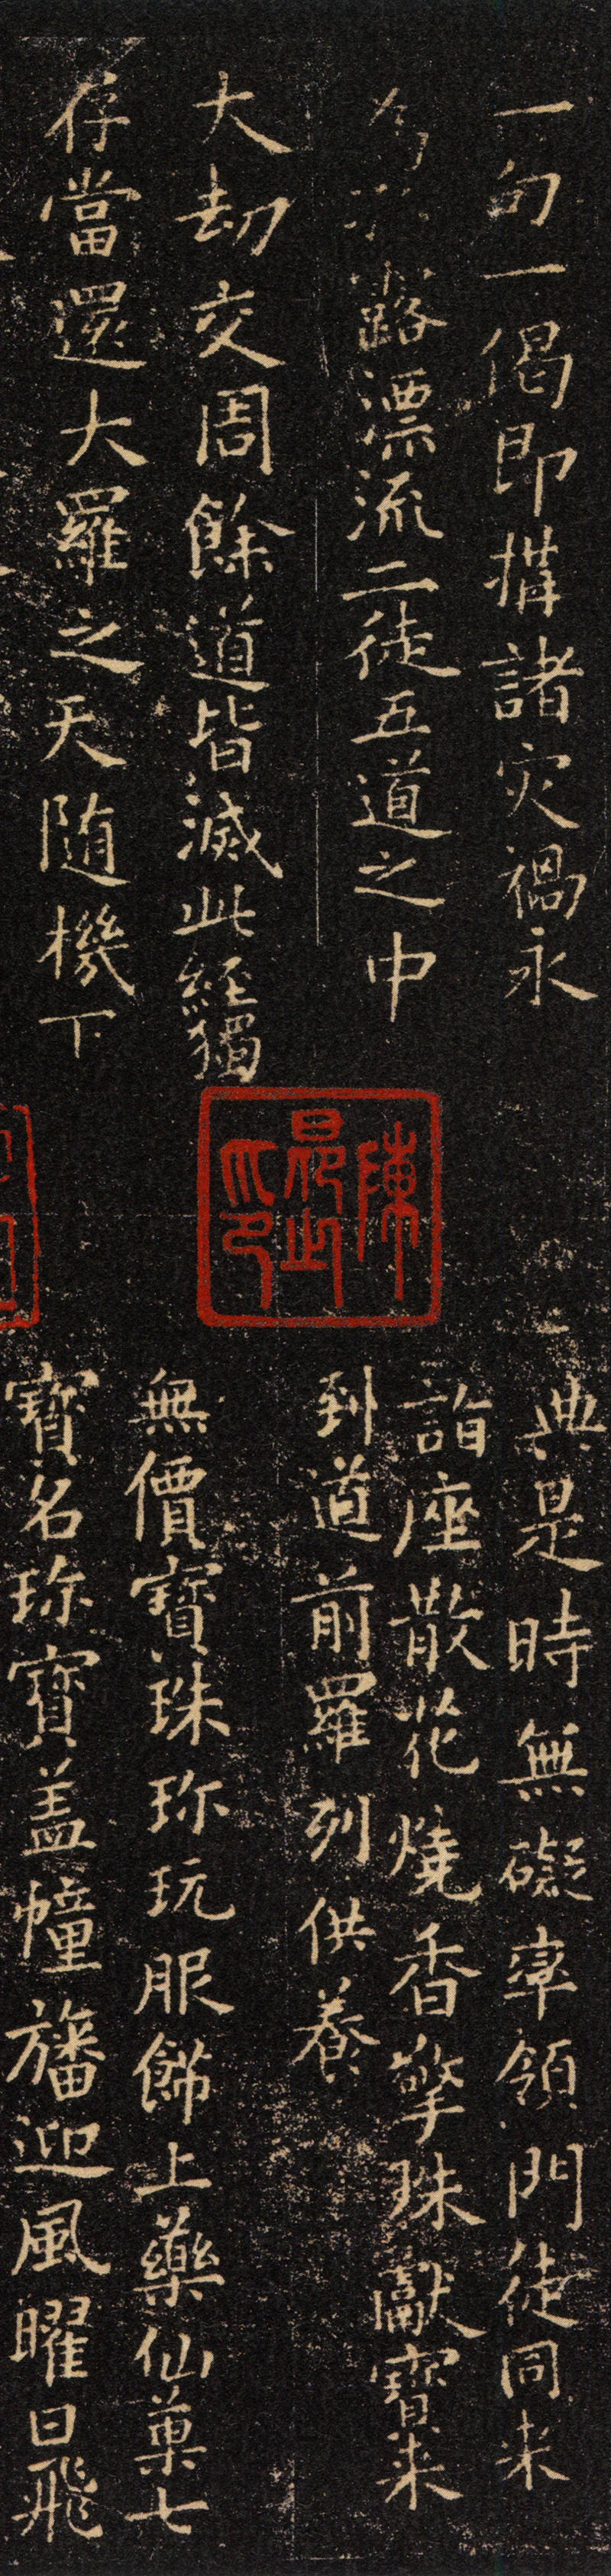 一句一偈即搆諸灾禍永
路漂流二徒五道之中
大劫交周餘道皆滅此經獨
存當還大羅之天随機下
典是時無礙率領門徒同来
詣座散花燒香擎珠獻寶来
到道前羅列供養
無價寶珠珎玩服飾上藥仙菓七
寶名珎寶盖幢旛迎風曜日飛
陳
印